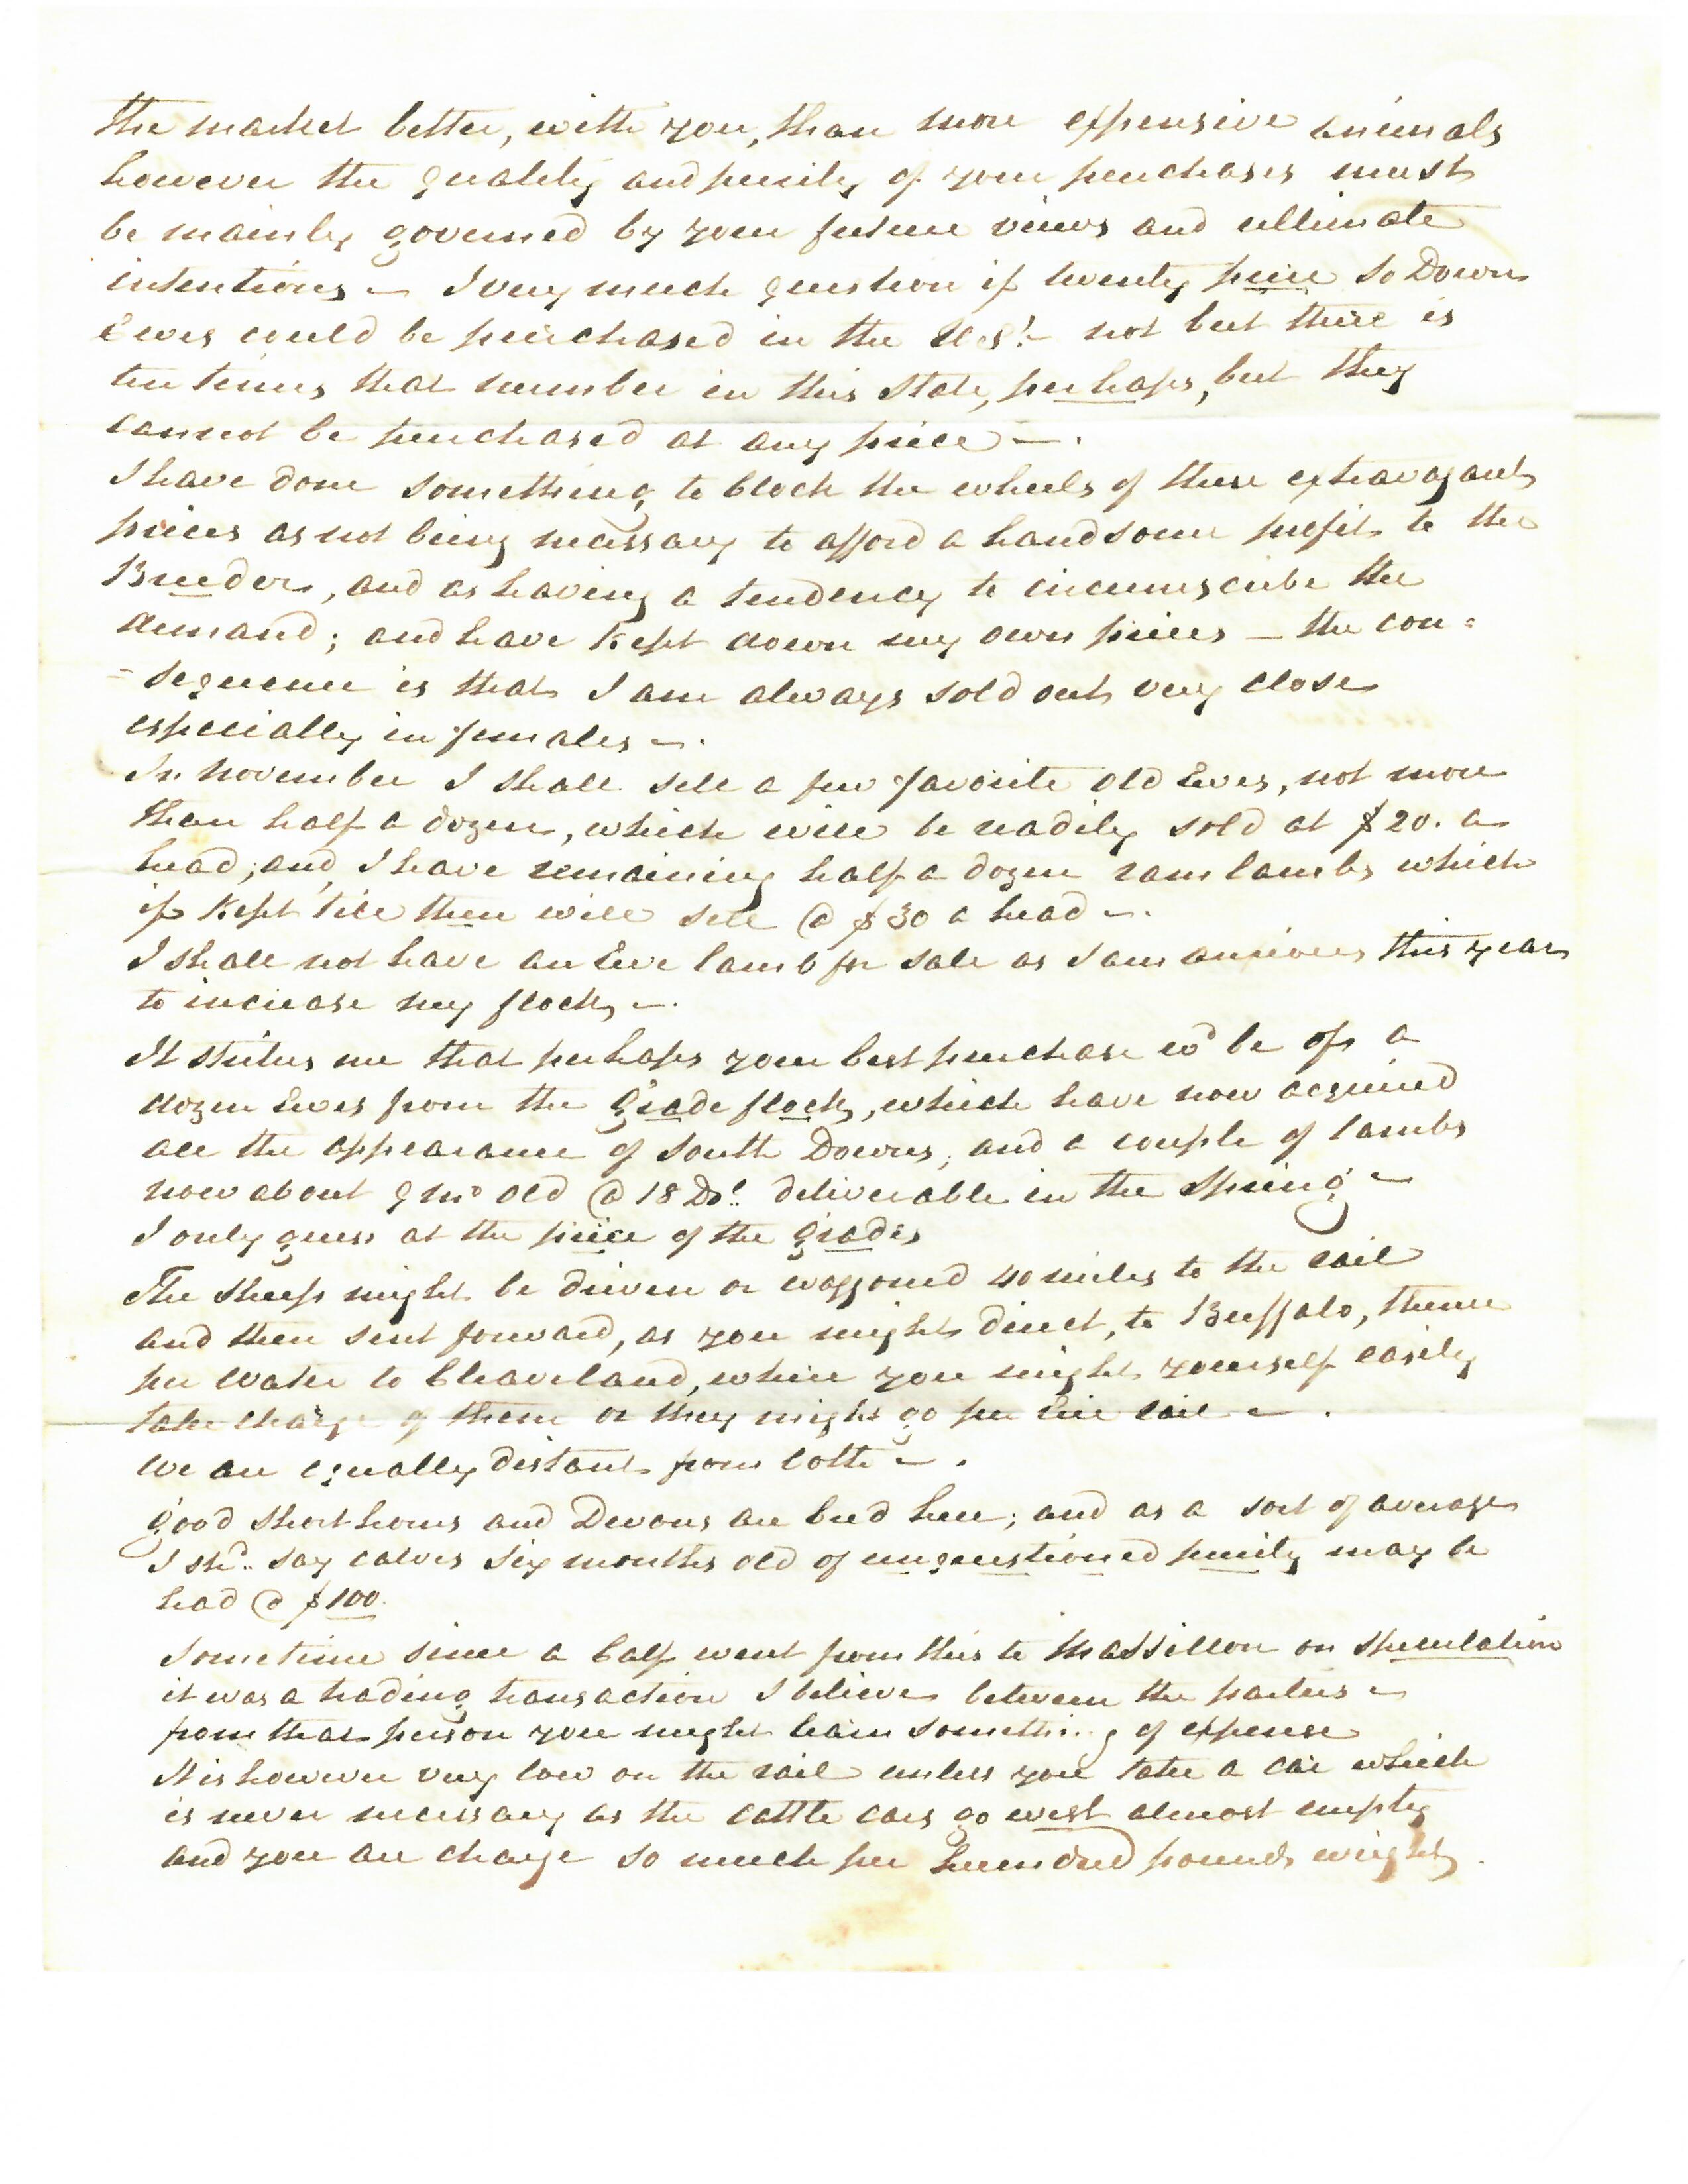 the market better, with you, than more expensive animals
however the quality and purity of your purchases must
be mainly governed by your future views and ultimate
intentions — I very much question if twenty pure So Down
Ewes could be purchased in the U.S! — not but there is
ten times that number in this State, perhaps, but they
cannot be purchased at any price — .
I have done something to block the wheels of these extravagant
prices as not being necessary to afford a handsome profit to the
Breeder, and as having a tendency to circumscribe the
demand; and have kept down my own prices — the con=
=sequence is that I am always sold out very close
especially in females — .
In November I shall sell a few favorite old Ewes, not more
than half a dozen, which will be readily sold at $20. a
head; and I have remaining half a dozen ram lambs which
if kept till then will sell @ $30 a head — .
I shall not have an Ewe lamb for sale as I am anxious this year
to increase my flock — .
It strikes me that perhaps your best purchase wd be of a
dozen Ewes from the Grade flock, which have now acquired
all the appearance of South Downs; and a couple of lambs
now about 9 mo old @ 18 Dol. deliverable in the Spring —
I only guess at the price of the Grades
The Sheep might be driven or waggoned 40 miles to the rail
and then sent forward, as you might direct, to Buffalo, thence
per Water to Cleaveland, where you might yourself easily
take charge of them or they might go per Erie rail — .
We are equally distant from both — .
Good Short horns and Devons are bred here; and as a sort of average
I shd. say calves six months old of unquestioned purity may be
had @ $100.
Sometime since a Calf went from this to Massillon on speculation
it was a trading transaction I believe between the parties —
from that person you might learn something of expense
It is however very low on the rail unless you take a car which
is never necessary as the cattle cars go west almost empty
and you are charge so much per hundred pounds weight.